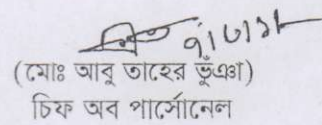 (মোঃ আবু তাহের ভুঁঞা)
চিফ অব পার্সোনেল